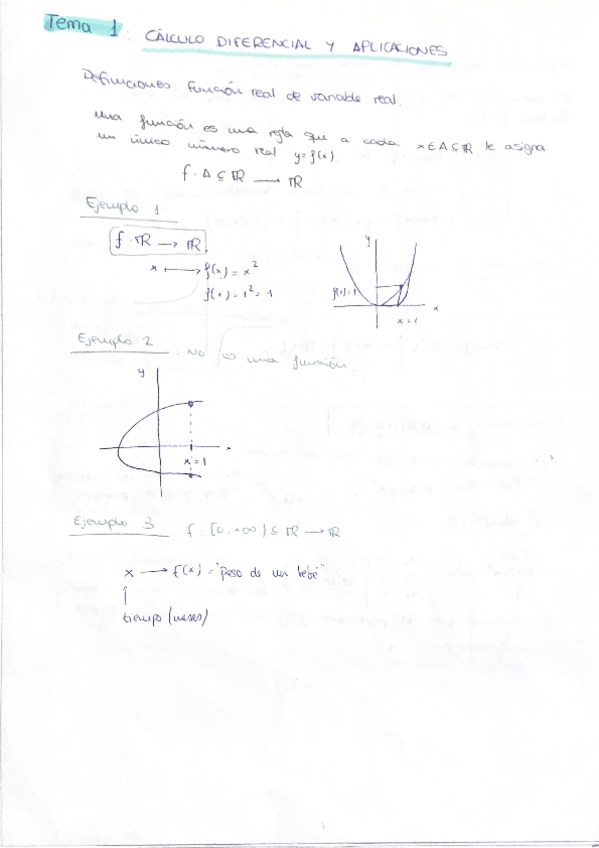 Tema 1: CÁLCULO DIFERENCIAL Y APLICACIONES
Definiciones: Función real de variable real.
Una función es una regla que a cada x ∈ A ⊆ ℝ le asigna
un único número real y = f(x).
f: A ⊆ ℝ → ℝ
Ejemplo 1
f: ℝ → ℝ
x ↦ f(x) = x²
f(1) = 1² = 1
y
f(1)=1
x
x = 1
Ejemplo 2: No es una función.
y
x
x = 1
Ejemplo 3 f: [0, +∞) ⊆ ℝ → ℝ
x → f(x) = "peso de un bebé"
↑
tiempo (meses)
1